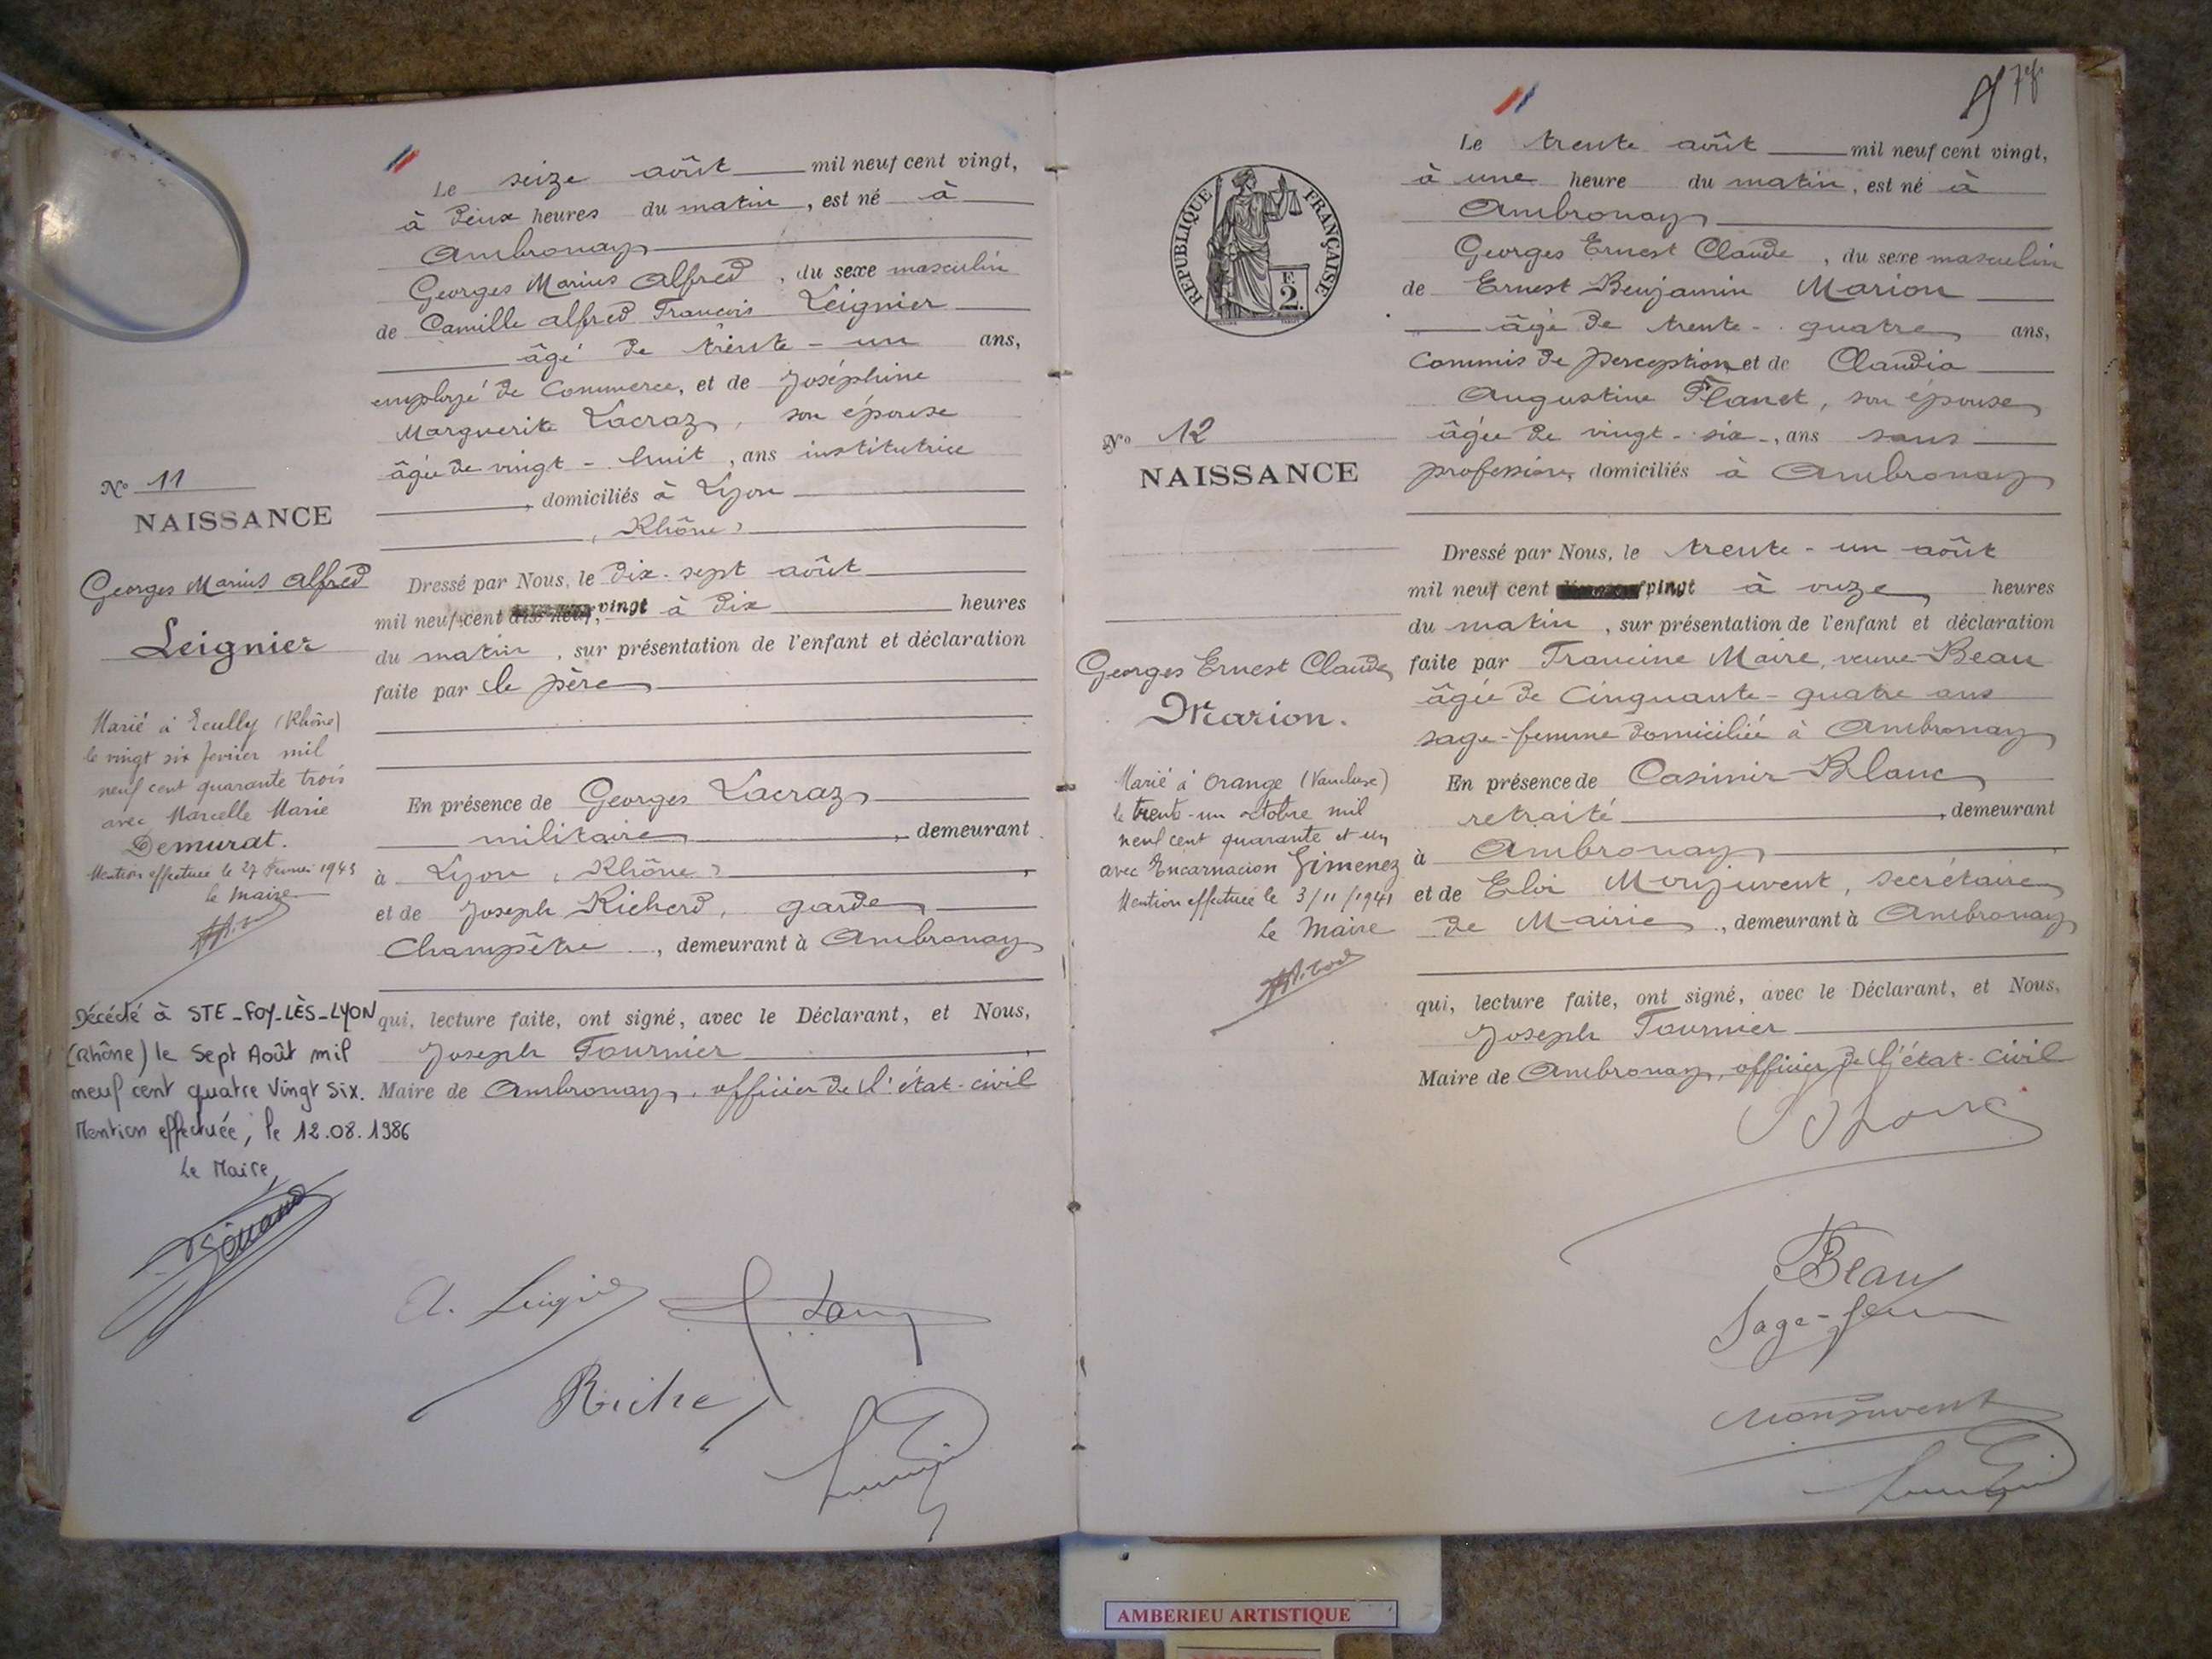 Le seize août mil neuf cent vingt,
à deux heures du matin, est né à
Ambronay
Georges Marius Alfred, du sexe masculin
de Camille Alfred François Leignier
âgé de trente-un ans,
employé de commerce, et de Joséphine
Marguerite Lacraz, son épouse
âgée de vingt-huit, ans institutrice
, domiciliés à Lyon
(Rhône)
N° 11
NAISSANCE
Georges Marius Alfred
Leignier
Marié à Ecully (Rhône)
le vingt six fevrier mil
neuf cent quarante trois
avec Marcelle Marie
Demurat.
Mention effectuée le 27 Fevrier 1943
le Maire
Décédé à STE-FOY-LÈS-LYON
(Rhône) le Sept Août mil
neuf cent quatre Vingt Six.
Mention effectuée, le 12.08.1986
Le Maire,
Dressé par Nous, le dix-sept août
mil neuf cent dix-neuf, vingt à dix heures
du matin, sur présentation de l'enfant et déclaration
faite par le père
En présence de Georges Lacraz
militaire, demeurant
à Lyon (Rhône)
et de Joseph Richerd, garde
Champêtre, demeurant à Ambronay
qui, lecture faite, ont signé, avec le Déclarant, et Nous,
Joseph Tournier
Maire de Ambronay, officier de l'état-civil
A. Leignier
Riche
7
RÉPUBLIQUE FRANÇAISE
F.
2.
Le trente août mil neuf cent vingt,
à une heure du matin, est né à
Ambronay
Georges Ernest Claude, du sexe masculin
de Ernest Benjamin Marion
âgé de trente-quatre ans,
commis de perception et de Claudia
Augustine Planet, son épouse
âgée de vingt-six, ans sans
profession, domiciliés à Ambronay
N° 12
NAISSANCE
Georges Ernest Claude
Marion.
Marié à Orange (Vaucluse)
le trente-un octobre mil
neuf cent quarante et un
avec Encarnacion Gimenez
Mention effectuée le 3/11/1941
Le Maire
Dressé par Nous, le trente-un août
mil neuf cent vingt à onze heures
du matin, sur présentation de l'enfant et déclaration
faite par Francine Maire, veuve Beau
âgée de cinquante-quatre ans
sage-femme domiciliée à Ambronay
En présence de Casimir Blanc
retraité, demeurant
à Ambronay
et de Eloi Monjuvent, secrétaire
de Mairie, demeurant à Ambronay
qui, lecture faite, ont signé, avec le Déclarant, et Nous,
Joseph Tournier
Maire de Ambronay, officier de l'état-civil
Beau
Sage-fem
Monjuvent
AMBERIEU ARTISTIQUE